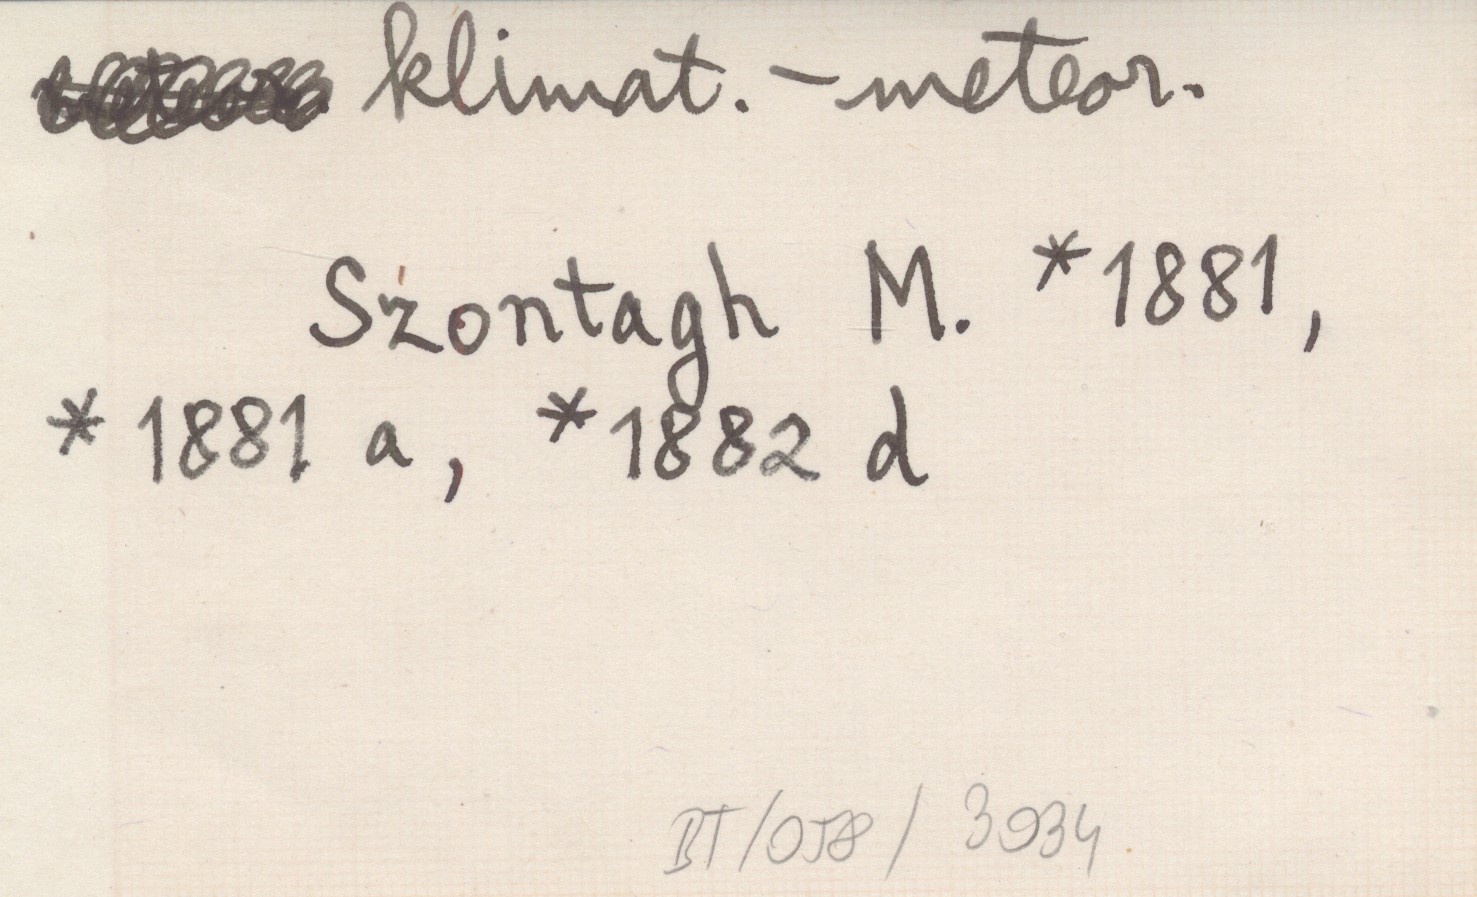 klimat. - meteor.
Szontagh M. *1881,
*1881 a, *1882 d
BT/058/3934